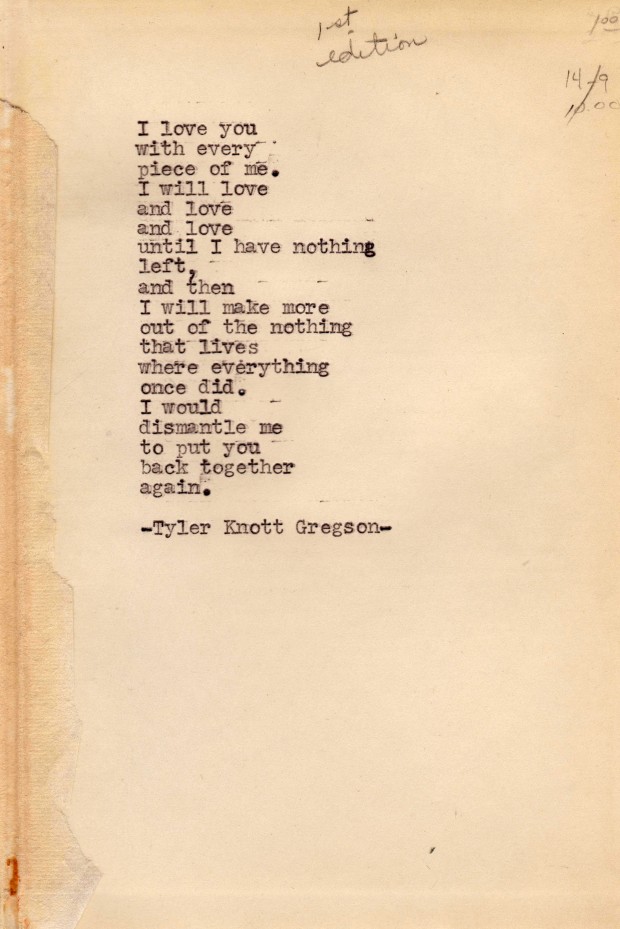 1st
edition
1.00
14-9
10.00
I love you
with every
piece of me.
I will love
and love
and love
until I have nothing
left,
and then
I will make more
out of the nothing
that lives
where everything
once did.
I would
dismantle me
to put you
back together
again.
-Tyler Knott Gregson-